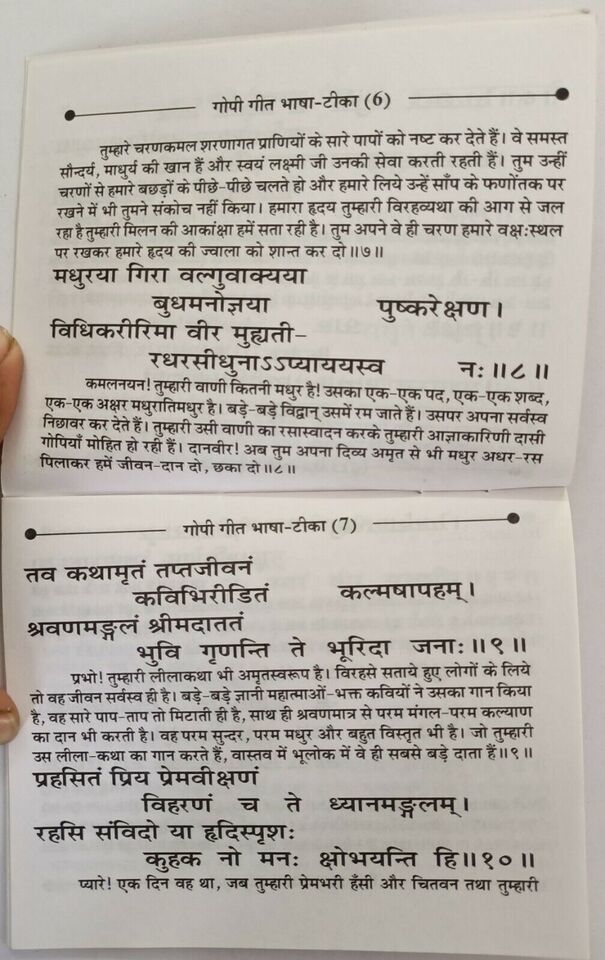 गोपी गीत भाषा-टीका (6)
तुम्हारे चरणकमल शरणागत प्राणियों के सारे पापों को नष्ट कर देते हैं। वे समस्त
सौन्दर्य, माधुर्य की खान हैं और स्वयं लक्ष्मी जी उनकी सेवा करती रहती हैं। तुम उन्हीं
चरणों से हमारे बछड़ों के पीछे-पीछे चलते हो और हमारे लिये उन्हें साँप के फणोंतक पर
रखने में भी तुमने संकोच नहीं किया। हमारा हृदय तुम्हारी विरहव्यथा की आग से जल
रहा है तुम्हारी मिलन की आकांक्षा हमें सता रही है। तुम अपने वे ही चरण हमारे वक्षःस्थल
पर रखकर हमारे हृदय की ज्वाला को शान्त कर दो॥७॥
मधुरया गिरा वल्गुवाक्यया
बुधमनोज्ञया पुष्करेक्षण।
विधिकरीरिमा वीर मुह्यती-
रधरसीधुनाऽऽप्याययस्व नः॥८॥
कमलनयन! तुम्हारी वाणी कितनी मधुर है! उसका एक-एक पद, एक-एक शब्द,
एक-एक अक्षर मधुरातिमधुर है। बड़े-बड़े विद्वान् उसमें रम जाते हैं। उसपर अपना सर्वस्व
निछावर कर देते हैं। तुम्हारी उसी वाणी का रसास्वादन करके तुम्हारी आज्ञाकारिणी दासी
गोपियाँ मोहित हो रही हैं। दानवीर! अब तुम अपना दिव्य अमृत से भी मधुर अधर-रस
पिलाकर हमें जीवन-दान दो, छका दो॥८॥
गोपी गीत भाषा-टीका (7)
तव कथामृतं तप्तजीवनं
कविभिरीडितं कल्मषापहम्।
श्रवणमङ्गलं श्रीमदाततं
भुवि गृणन्ति ते भूरिदा जनाः॥९॥
प्रभो! तुम्हारी लीलाकथा भी अमृतस्वरूप है। विरहसे सताये हुए लोगों के लिये
तो वह जीवन सर्वस्व ही है। बड़े-बड़े ज्ञानी महात्माओं-भक्त कवियों ने उसका गान किया
है, वह सारे पाप-ताप तो मिटाती ही है, साथ ही श्रवणमात्र से परम मंगल-परम कल्याण
का दान भी करती है। वह परम सुन्दर, परम मधुर और बहुत विस्तृत भी है। जो तुम्हारी
उस लीला-कथा का गान करते हैं, वास्तव में भूलोक में वे ही सबसे बड़े दाता हैं॥९॥
प्रहसितं प्रिय प्रेमवीक्षणं
विहरणं च ते ध्यानमङ्गलम्।
रहसि संविदो या हृदिस्पृशः
कुहक नो मनः क्षोभयन्ति हि॥१०॥
प्यारे! एक दिन वह था, जब तुम्हारी प्रेमभरी हँसी और चितवन तथा तुम्हारी